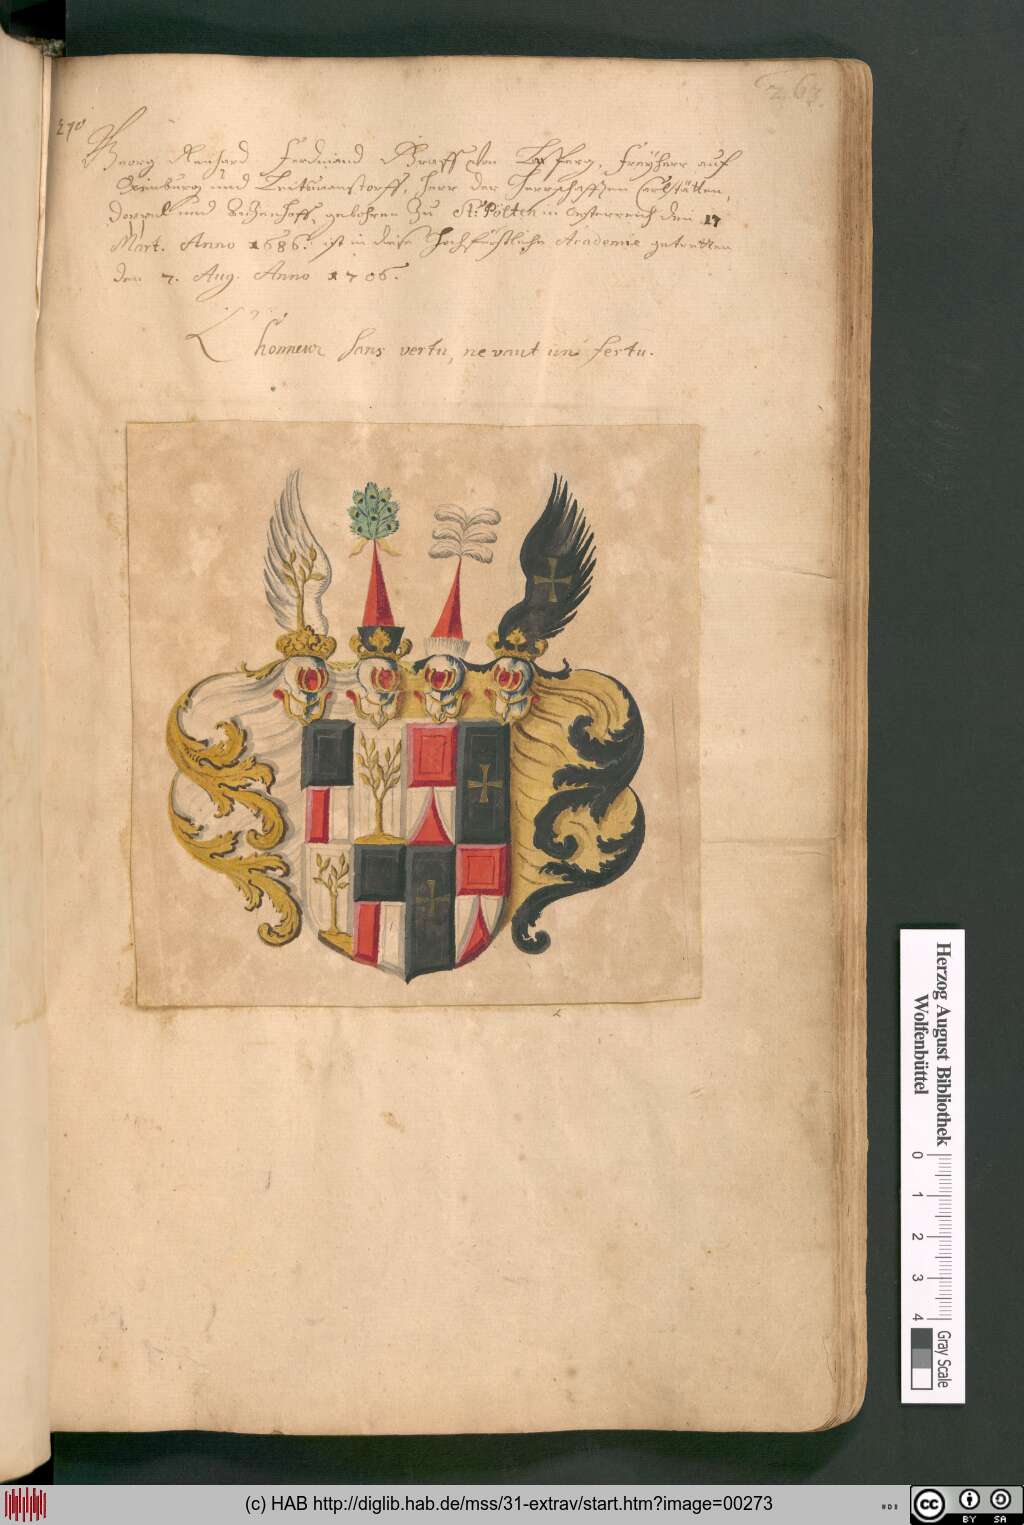 263.
270
Georg Reinhard Ferdinand Graff von Freyherr auf
und Leitmanstorff, Herr der Herrschafften Carlstätten,
Doppel und gebohren zu St: Pölten in Oesterreich den 17
Mart. Anno 1686. ist in diese Hochfürstliche Academie getretten
den 7. Aug. Anno 1706.
L'honneur sans vertu, ne vaut un festu.
Herzog August Bibliothek
Wolfenbüttel
0 1 2 3 4
Gray Scale
(c) HAB http://diglib.hab.de/mss/31-extrav/start.htm?image=00273
cc BY SA